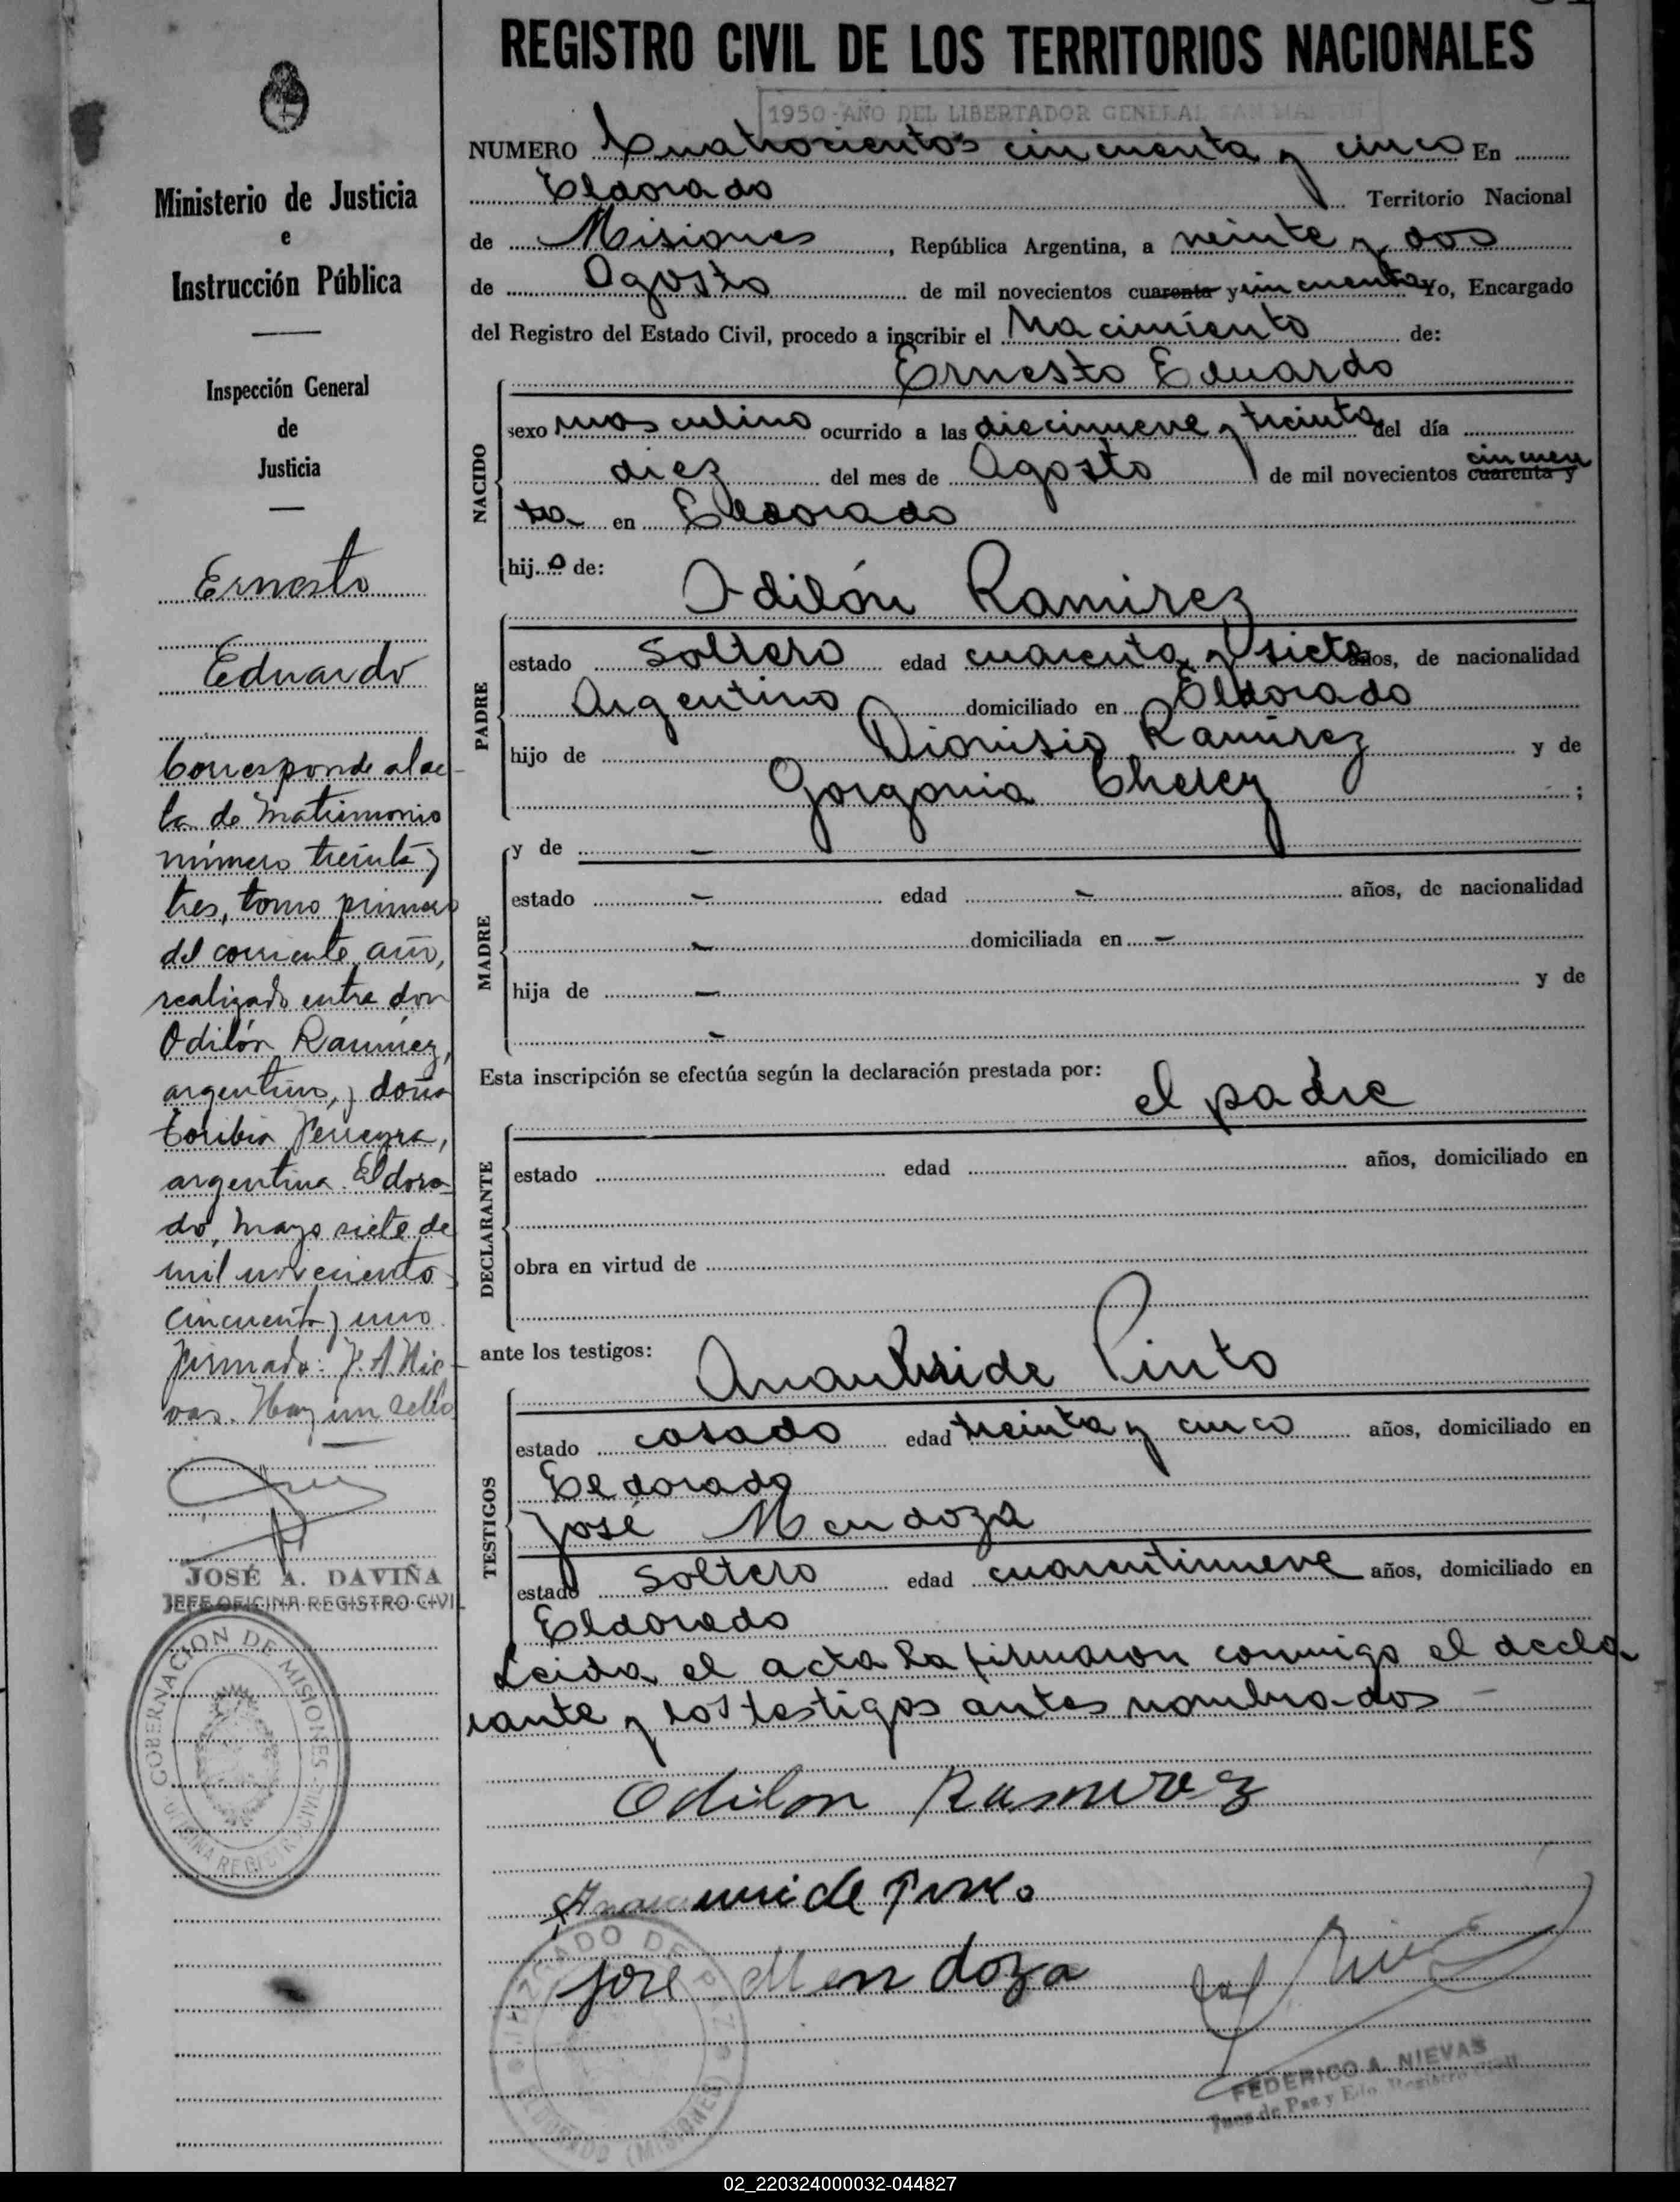 REGISTRO CIVIL DE LOS TERRITORIOS NACIONALES
1950-AÑO DEL LIBERTADOR GENERAL SAN MARTIN
NUMERO Cuatrocientos cincuenta y cinco En
Eldorado Territorio Nacional
de Misiones, República Argentina, a veinte y dos
de Agosto de mil novecientos cuarenta y cincuenta Yo, Encargado
del Registro del Estado Civil, procedo a inscribir el Nacimiento de:
Ernesto Eduardo
NACIDO
sexo masculino ocurrido a las diecinueve y treinta del día
diez del mes de Agosto de mil novecientos cuarenta y cincuen
ta en Eldorado
hijo de:
Odilón Ramirez
PADRE
estado Soltero edad cuarenta y siete años, de nacionalidad
Argentino domiciliado en Eldorado
hijo de Dionisio Ramirez y de
Gorgonia ;
MADRE
y de –
estado – edad – años, de nacionalidad
– domiciliada en –
hija de – y de
–
Esta inscripción se efectúa según la declaración prestada por:
el padre
DECLARANTE
estado edad años, domiciliado en
obra en virtud de
ante los testigos:
Pinto
TESTIGOS
estado casado edad treinta y cinco años, domiciliado en
Eldorado
José Mendoza
estado Soltero edad cuarentinueve años, domiciliado en
Eldorado
Leida el acta la firmaron conmigo el decla
rante y los testigos antes nombrados –
Odilon Ramirez
José Mendoza
JUZGADO DE PAZ
ELDORADO (MISIONES)
FEDERICO A. NIEVAS
Juez de Paz y Edo. Registro Civil
Ministerio de Justicia
e
Instrucción Pública
Inspección General
de
Justicia
Ernesto
Eduardo
Corresponde al ac-
ta de Matrimonio
número treinta y
tres, tomo primero
del corriente año,
realizado entre don
Odilón Ramirez,
argentino, y doña
Toribia Pereyra,
argentina. Eldora-
do, Mayo siete de
mil novecientos
cincuenta y uno.
Firmado: F. A. Nie-
vas. Hay un sello
JOSÉ A. DAVIÑA
JEFE OFICINA REGISTRO CIVIL
GOBERNACION DE MISIONES
OFICINA REGISTRO CIVIL
02_220324000032-044827